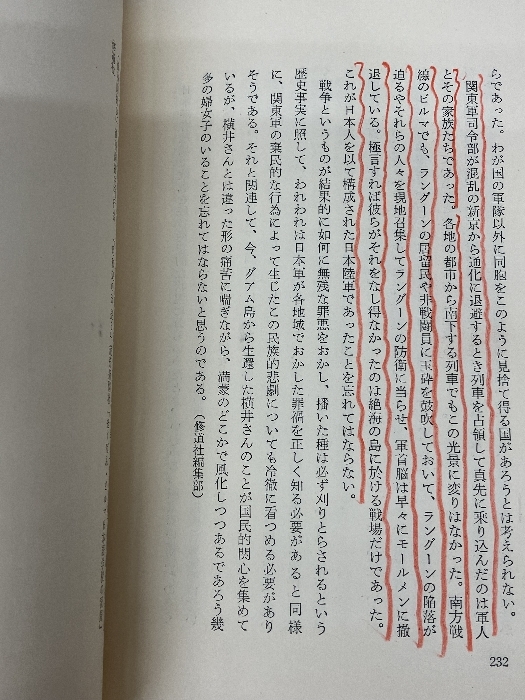 らであった。わが国の軍隊以外に同胞をこのように見捨て得る国があろうとは考えられない。
関東軍司令部が混乱の新京から通化に退避するとき列車を占領して真先に乗り込んだのは軍人
とその家族たちであった。各地の都市から南下する列車でもこの光景に変りはなかった。南方戦
線のビルマでも、ラングーンの居留民や非戦闘員に玉砕を鼓吹しておいて、ラングーンの陥落が
迫るやそれらの人々を現地召集してラングーンの防衛に当らせ、軍首脳は早々にモールメンに撤
退している。極言すれば彼らがそれをなし得なかったのは絶海の島に於ける戦場だけであった。
これが日本人を以て構成された日本陸軍であったことを忘れてはならない。
戦争というものが結果的に如何に無残な罪悪をおかし、播いた種は必ず刈りとらされるという
歴史事実に照して、われわれは日本軍が各地域でおかした罪禍を正しく知る必要があると同様
に、関東軍の棄民的な行為によって生じたこの民族的悲劇についても冷徹に看つめる必要があり
そうである。それと関連して、今、グアム島から生還した横井さんのことが国民的関心を集めて
いるが、横井さんとは違った形の痛苦に喘ぎながら、満蒙のどこかで風化しつつあるであろう幾
多の婦女子のいることを忘れてはならないと思うのである。（修道社編集部）
232